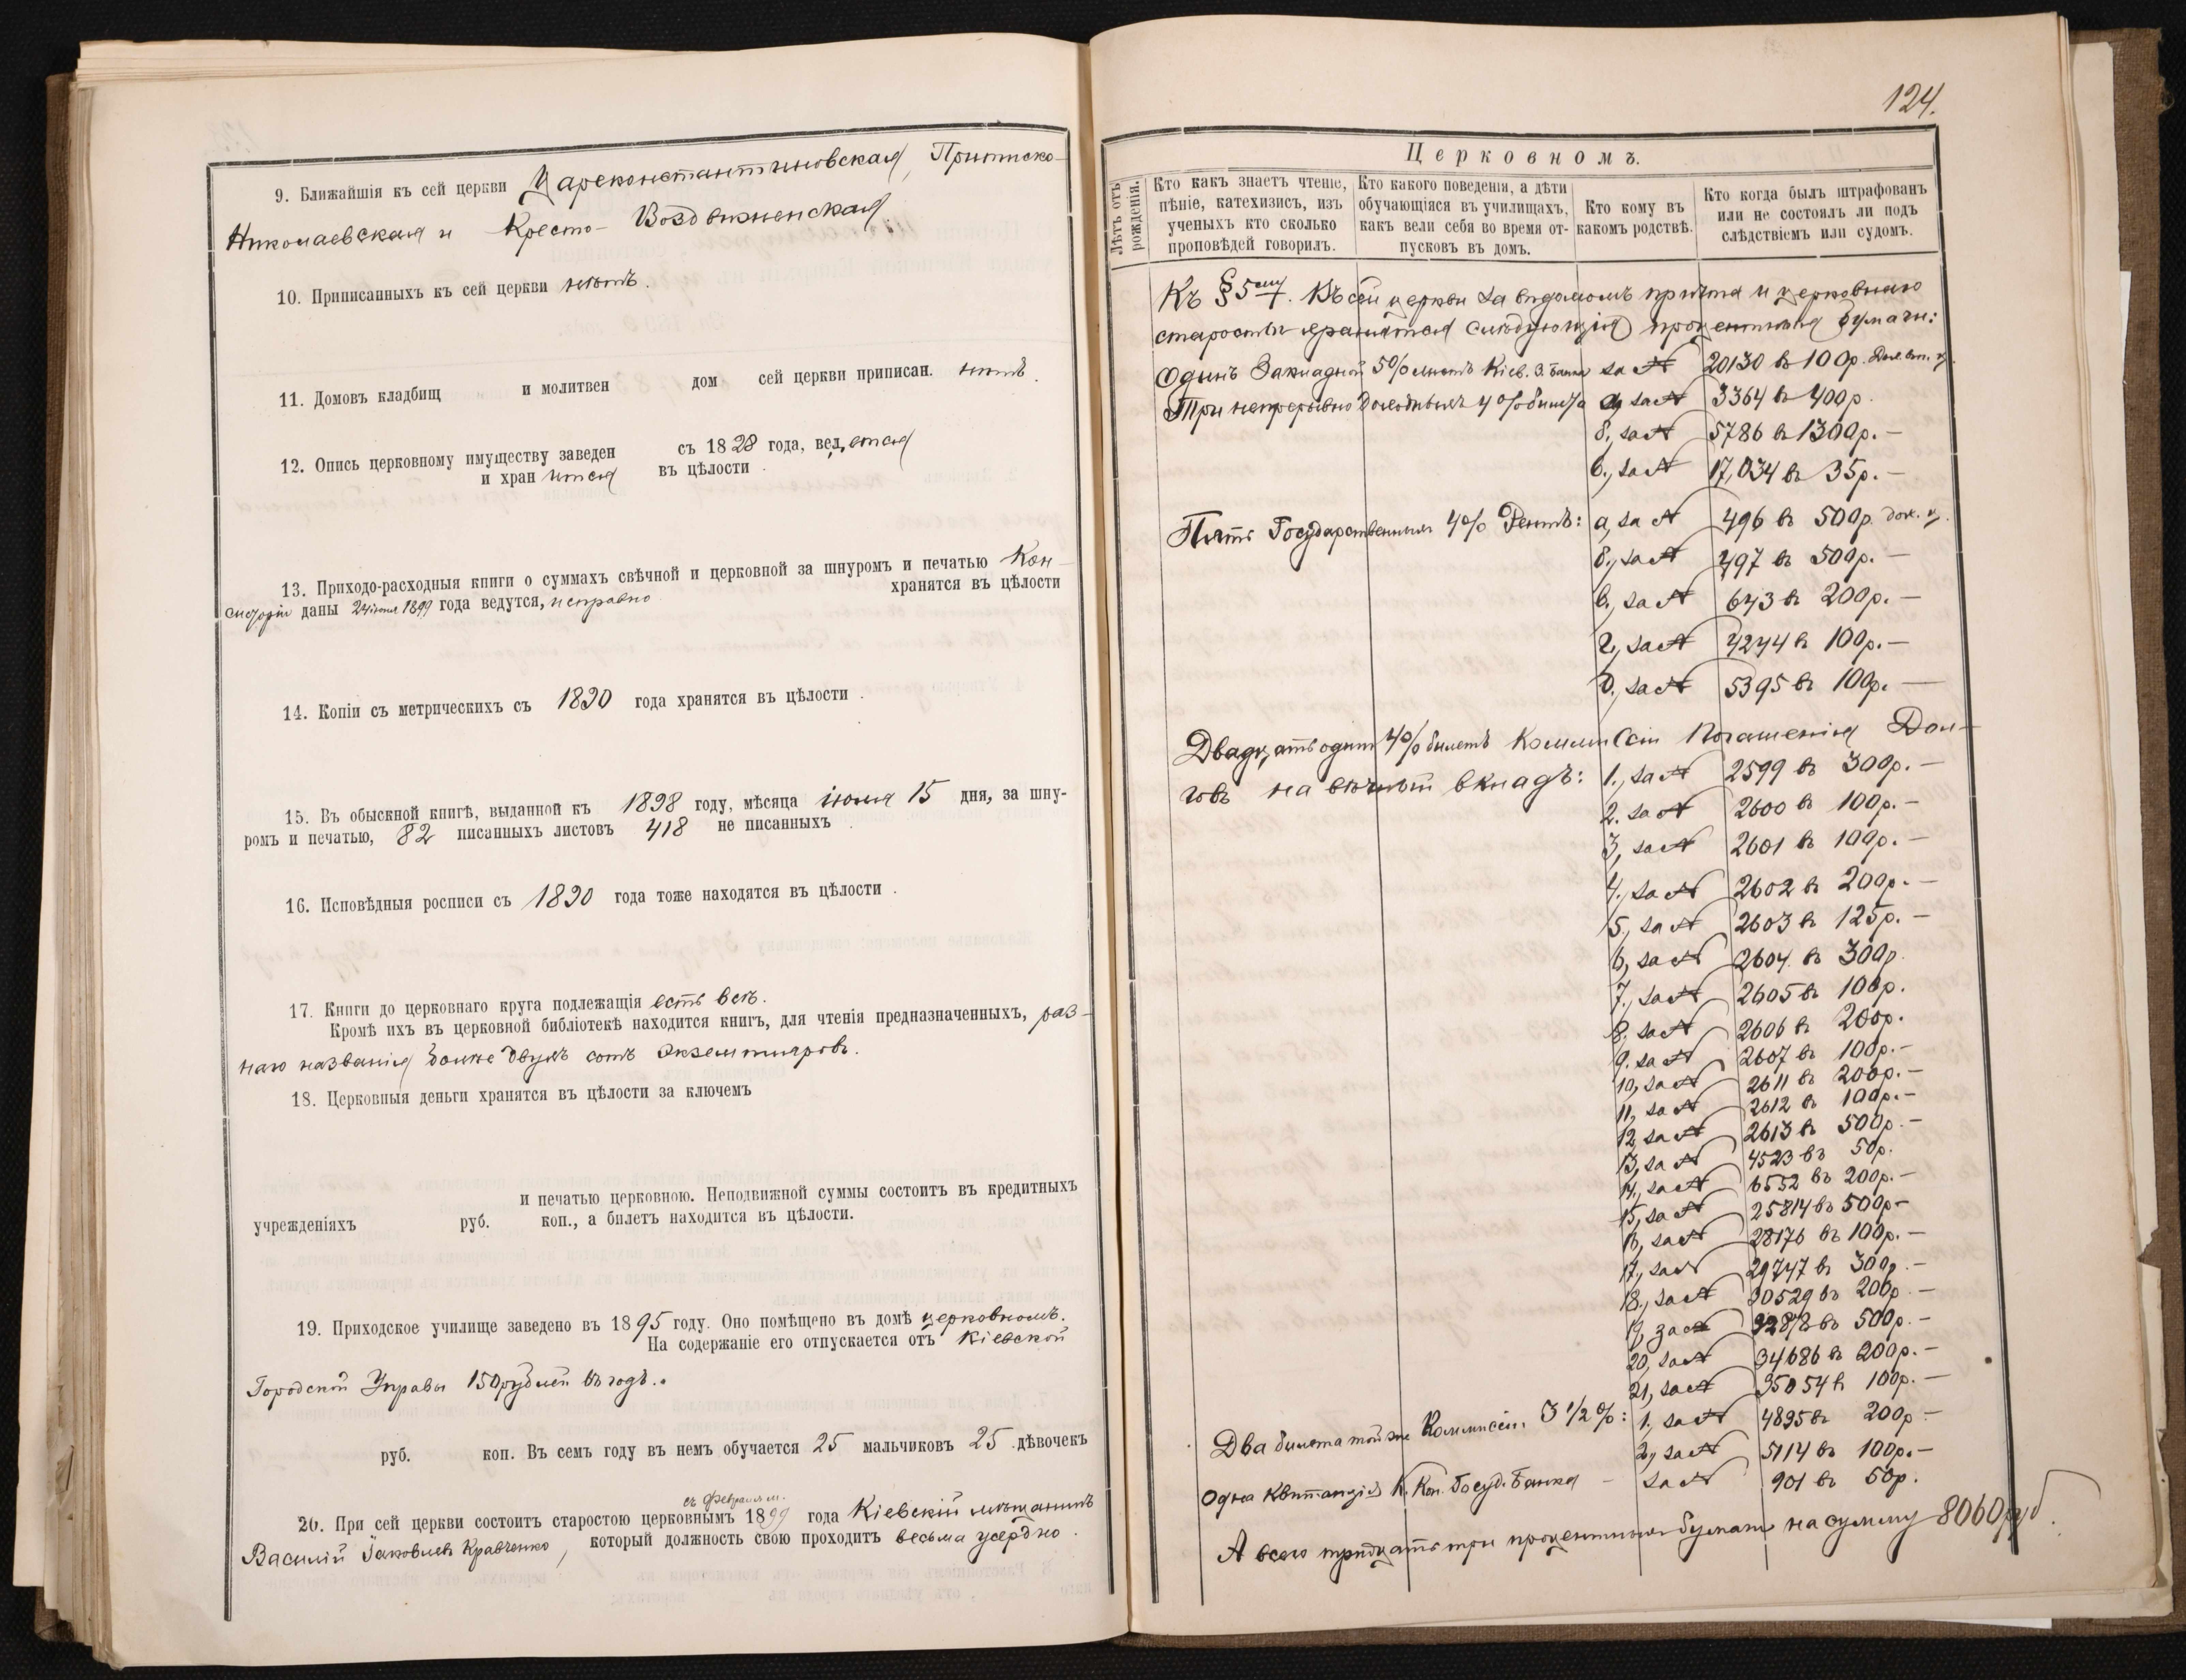 9. Ближайшія къ сей церкви Цареконстантиновская, Притиско-
Николаевская и Кресто-Воздвиженская
10. Приписанныхъ къ сей церкви нѣтъ.
11. Домовъ кладбищ и молитвен дом сей церкви приписан. нѣтъ.
12. Опись церковному имуществу заведен съ 1828 года, ведется
и хранится въ цѣлости.
13. Приходо-расходныя книги о суммахъ свѣчной и церковной за шнуромъ и печатью Кон-
систоріи даны 1899 года ведутся, исправно хранятся въ цѣлости
14. Копіи съ метрическихъ съ 1830 года хранятся въ цѣлости.
15. Въ обыскной книгѣ, выданной къ 1898 году, мѣсяца іюля 15 дня, за шну-
ромъ и печатью, 82 писанныхъ листовъ 418 не писанныхъ.
16. Исповѣдныя росписи съ 1830 года тоже находятся въ цѣлости.
17. Книги до церковнаго круга подлежащія есть всѣ.
Кромѣ ихъ въ церковной библіотекѣ находится книгъ, для чтенія предназначенныхъ, раз-
наго названія болѣе двухъ сотъ экземпляровъ.
18. Церковныя деньги хранятся въ цѣлости за ключемъ
и печатью церковною. Неподвижной суммы состоитъ въ кредитныхъ
учрежденіяхъ руб. коп., а билетъ находится въ цѣлости.
19. Приходское училище заведено въ 1895 году. Оно помѣщено въ домѣ церковномъ.
На содержаніе его отпускается отъ Кіевской
Городской Управы 150 рублей въ годъ.
руб. коп. Въ семъ году въ немъ обучается 25 мальчиковъ 25 дѣвочекъ
съ февраля м.
20. При сей церкви состоитъ старостою церковнымъ 1899 года Кіевскій мѣщанинъ
Василій Іаковлевъ Кравченко, который должность свою проходитъ весьма усердно.
124.
Церковномъ.
Лѣтъ отъ рожденія.
Кто какъ знаетъ чтеніе, пѣніе, катехизисъ, изъ ученыхъ кто сколько проповѣдей говорилъ.
Кто какого поведенія, а дѣти обучающіяся въ училищахъ, какъ вели себя во время отпусковъ въ домъ.
Кто кому въ какомъ родствѣ.
Кто когда былъ штрафованъ или не состоялъ ли подъ слѣдствіемъ или судомъ.
Къ § 5му. Въ сей церкви за вѣдомомъ причта и церковнаго
старосты хранятся слѣдующія процентныя бумаги:
Одинъ Закладной 5% листъ Кіев. З. Банка за № 20130 въ 100р.
Три непрерывно доходныхъ 4% билета а, за № 3364 въ 400р.
б., за № 5786 въ 1300р. —
в., за № 17,034 въ 35р. —
Пять Государственныхъ 4% Рентъ: а, за № 496 въ 500р.
б., за № 497 въ 500р. —
в., за № 643 въ 200р. —
г., за № 4244 въ 100р. —
д., за № 5395 въ 100р. —
Двадцать одинъ 4% билетъ Коммиссіи Погашенія Дол-
говъ на вѣчный вкладъ: 1., за № 2599 въ 300р. —
2. за № 2600 въ 100р. —
3, за № 2601 въ 100р. —
4., за № 2602 въ 200р. —
5., за № 2603 въ 125р. —
6, за № 2604 въ 300р.
7., за № 2605 въ 100р.
8. за № 2606 въ 200р.
9. за № 2607 въ 100р. —
10, за № 2611 въ 200р. —
11, за № 2612 въ 100р. —
12, за № 2613 въ 500р. —
13, за № 4523 въ 50р.
14, за № 6552 въ 200р. —
15, за № 25814 въ 500р. —
16, за № 28176 въ 100р. —
17., за № 29747 въ 300р. —
18., за № 30529 въ 200р. —
19, за № 32878 въ 500р. —
20, за № 34686 въ 200р. —
21, за № 35054 въ 100р. —
Два билета той же Коммиссіи. 3 1/2 %: 1., за № 4895 въ 200р —
2, за № 5114 въ 100р. —
Одна Квитанція К. Кон. Госуд. Банка — за № 901 въ 50р.
А всего тридцать три процентныхъ бумаги на сумму 8060 руб.